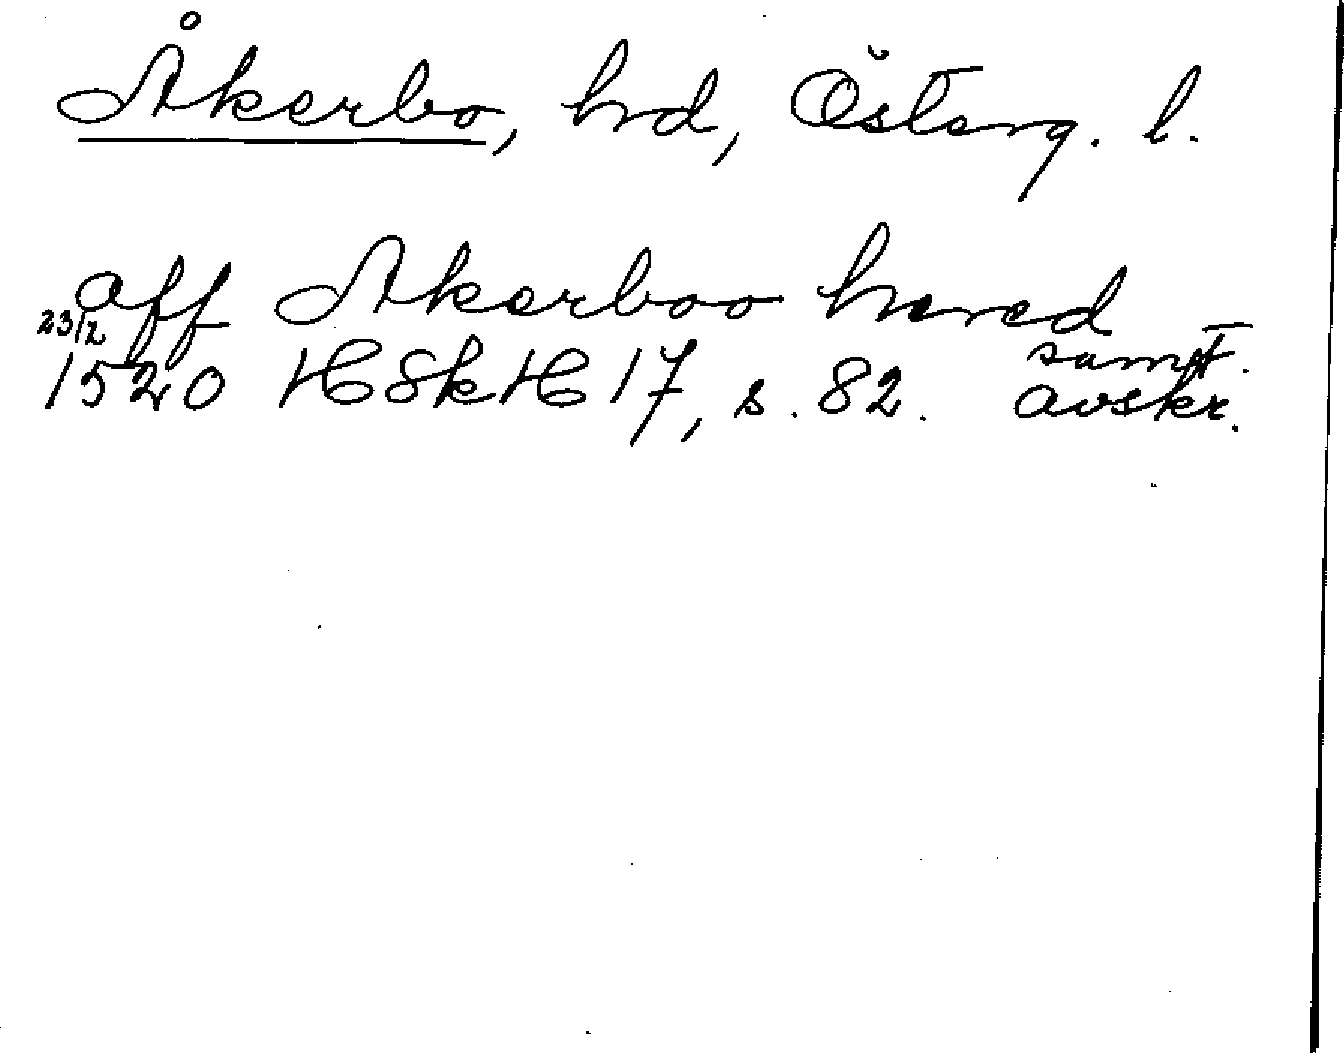 Åkerbo, hd, Österg. l.
aff Akerboo hered
23/2 1520 HSkH 17, s. 82. samt. avskr.